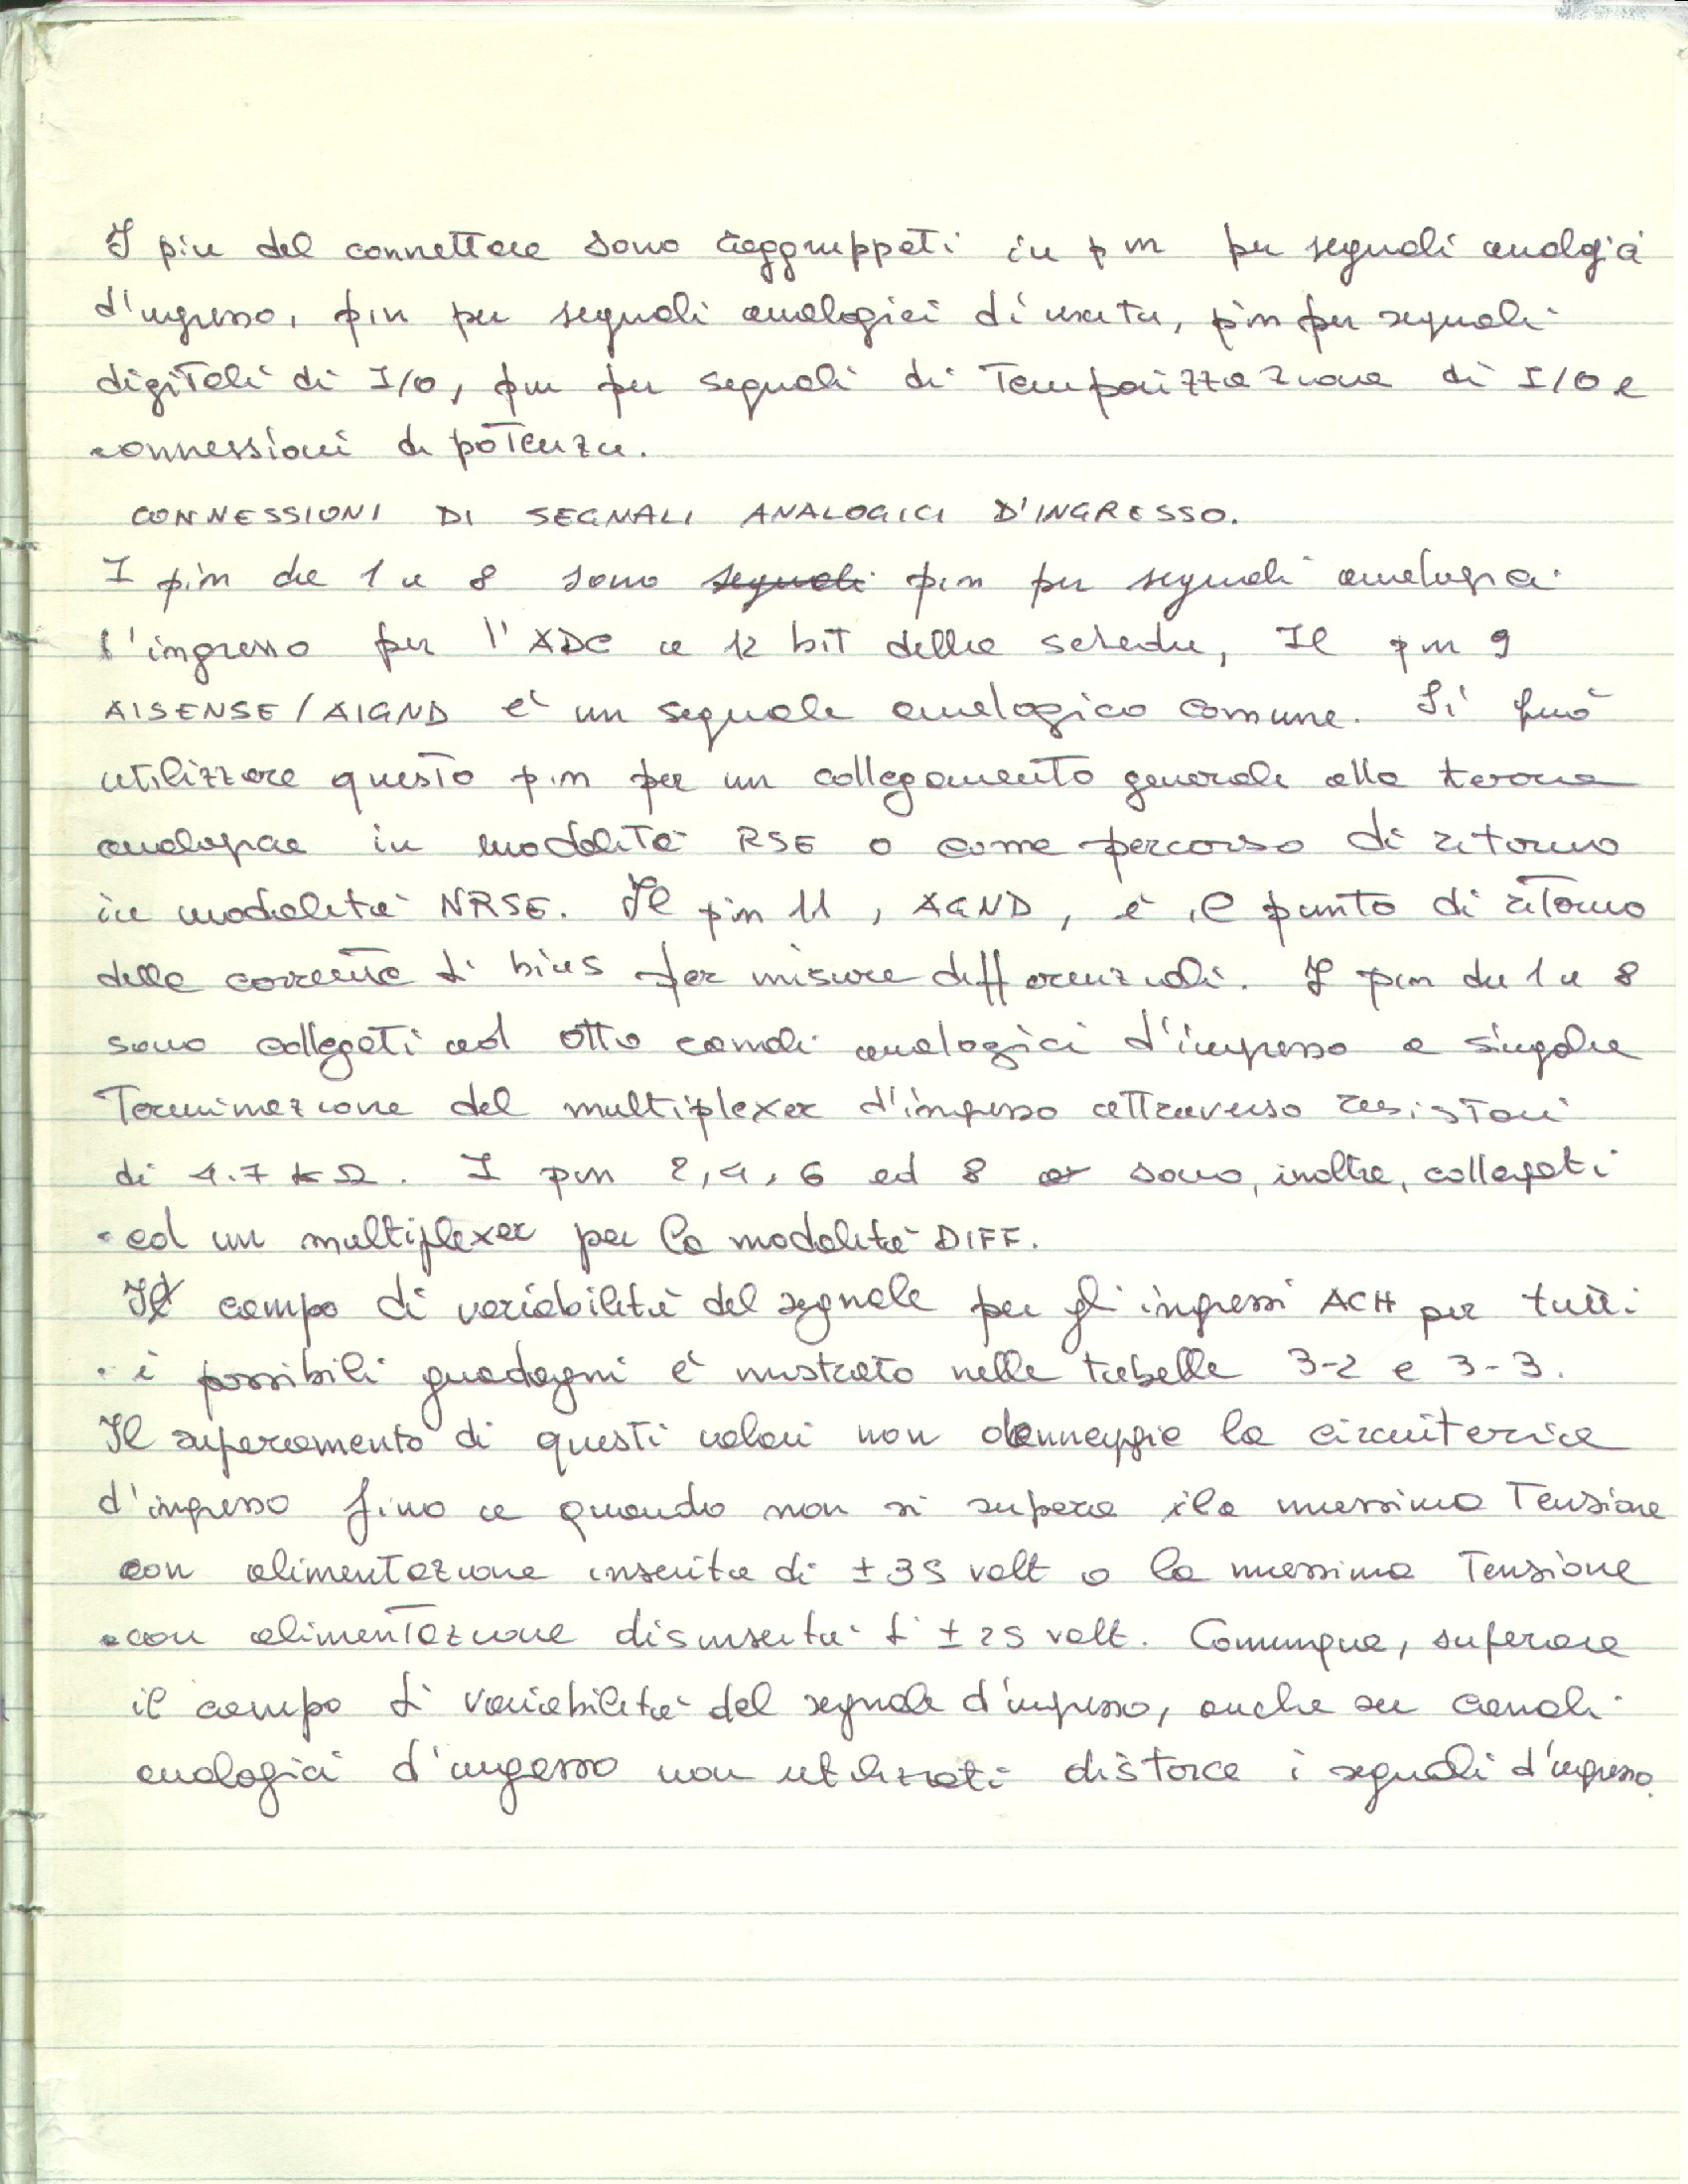 I pin del connettore sono raggruppati in pin per segnali analogici
d'ingresso, pin per segnali analogici di uscita, pin per segnali
digitali di I/O, pin per segnali di temporizzazione di I/O e
connessioni di potenza.
CONNESSIONI DI SEGNALI ANALOGICI D'INGRESSO.
I pin da 1 a 8 sono segnali pin per segnali analogici
d'ingresso per l'ADC a 12 bit della scheda, Il pin 9
AISENSE/AIGND è un segnale analogico comune. Si può
utilizzare questo pin per un collegamento generale alla terra
analogica in modalità RSE o come percorso di ritorno
in modalità NRSE. Il pin 11, AGND, è il punto di ritorno
della corrente di bias per misure differenziali. I pin da 1 a 8
sono collegati ad otto canali analogici d'ingresso a singola
terminazione del multiplexer d'ingresso attraverso resistori
di 4.7 kΩ. I pin 2, 4, 6 ed 8 sono, inoltre, collegati
ad un multiplexer per la modalità DIFF.
Il campo di variabilità del segnale per gli ingressi ACH per tutti
i possibili guadagni è mostrato nelle tabelle 3-2 e 3-3.
Il superamento di questi valori non danneggia la circuiteria
d'ingresso fino a quando non si supera la massima tensione
con alimentazione inserita di ±35 volt o la massima tensione
con alimentazione disinserita di ±25 volt. Comunque, superare
il campo di variabilità del segnale d'ingresso, anche su canali
analogici d'ingresso non utilizzati distorce i segnali d'ingresso.